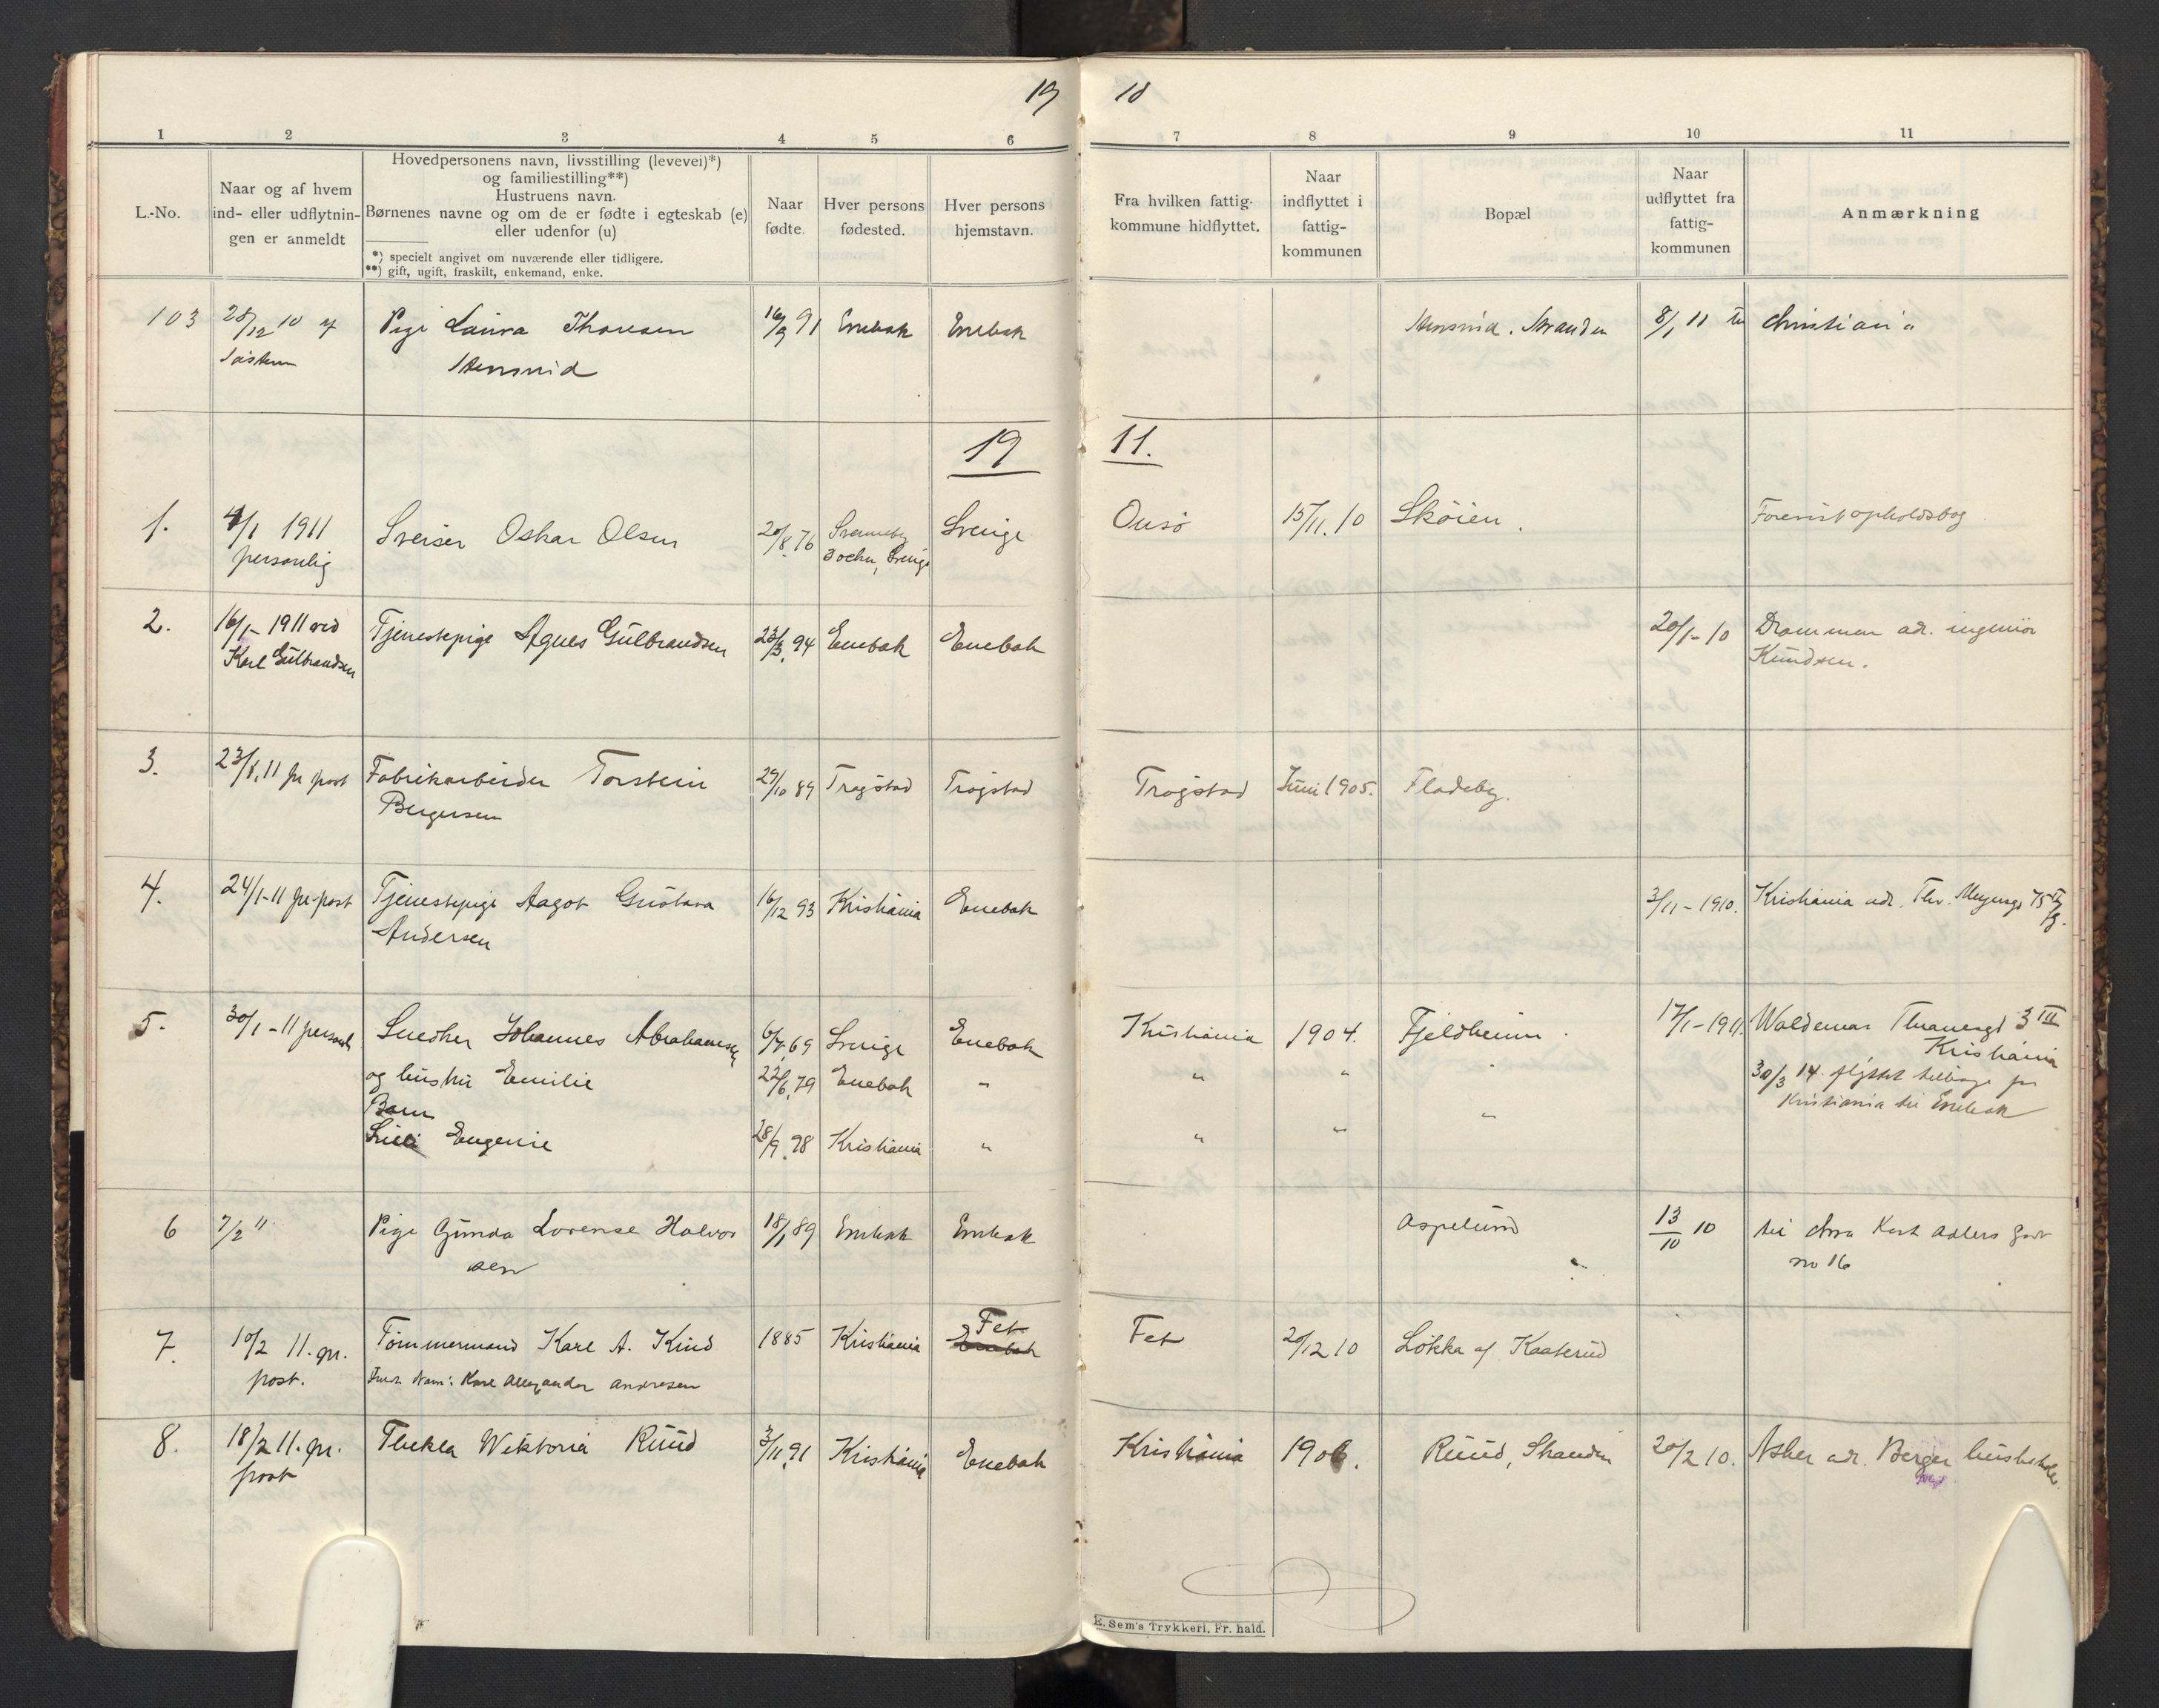 19 10
1 2 3 4 5 6 7 8 9 10 11
L.-No.
Naar og af hvem
ind- eller udflytnin-
gen er anmeldt
Hovedpersonens navn, livsstilling (levevei)*)
og familiestilling**)
Hustruens navn.
Børnenes navne og om de er fødte i egteskab (e)
eller udenfor (u)
*) specielt angivet om nuværende eller tidligere.
**) gift, ugift, fraskilt, enkemand, enke.
Naar
fødte.
Hver persons
fødested.
Hver persons
hjemstavn.
Fra hvilken fattig-
kommune hidflyttet.
Naar
indflyttet i
fattig-
kommunen
Bopæl
Naar
udflyttet fra
fattig-
kommunen
Anmærkning
103 28/12 10 af Pige Laura Thoresen 16/9 91 Enebak Enebak Stensrud, Stranden 8/1 11 til Christiania
Stensrud
19 11.
1. 4/1 1911 Sveiser Oskar Olsen 20/8.76 Svenneby Sverige Onsö 15/11.10 Sköien. Forevist opholdsbog
personlig Sverige
2. 16/1-1911 ved Tjenestepige Agnes Gulbrandsen 23/3.94 Enebak Enebak 20/1-10 Drammen adr. ingeniör
Karl Gulbrandsen Knudsen.
3. 23/1.11 pr post Fabrikarbeider Torstein 29/10 89 Trøgstad Trøgstad Trøgstad Juni 1905. Fladeby.
Bergersen
4. 24/1-11 pr post Tjenestepige Aagot Gustava 16/12 93 Kristiania Enebak 3/11-1910. Kristiania adr. Thv. Meyersgd 75
Andersen
5. 30/1-11 personl. Snedker Johannes Abrahamsen 6/7.69 Sverige Enebak Kristiania 1904. Fjeldheim. 17/1-1911. Waldemar Thranesgd 3 III
Kristiania
og hustru Emilie 22/6.79 Enebak " " " 30/3 14. flyttet tilbage fra
Kristiania til Enebak
Barn
Eugenie 28/9.98 Kristiania " " " "
6 7/2 11 Pige Gunda Lovense Halvor 18/1 89 Enebak Enebak Aspelund 13/10 10 til Kra Kort Adlers gade
sen no 16
7. 10/2 11. pr. Tömmermand Karl A. Kind 1885 Kristiania Fet Enebak Fet 20/12 10 Lökka af Kaaterud
post. Navn: Karl Allexander Andresen
8. 18/2 11. pr. Thekla Wiktoria Ruud 3/11.91 Kristiania Enebak Kristiania 1906. Ruud, Stranden 20/2 10. Asker adr. Berger
post
E. Sem's Trykkeri, Fr. hald.